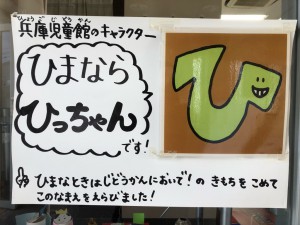 ひょうごじどうかん
兵庫児童館のキャラクター
ひまなら
ひっちゃん
です!
ひまなときはじどうかんにおいで!の きもちを こめて
このなまえをえらびました!
ひ